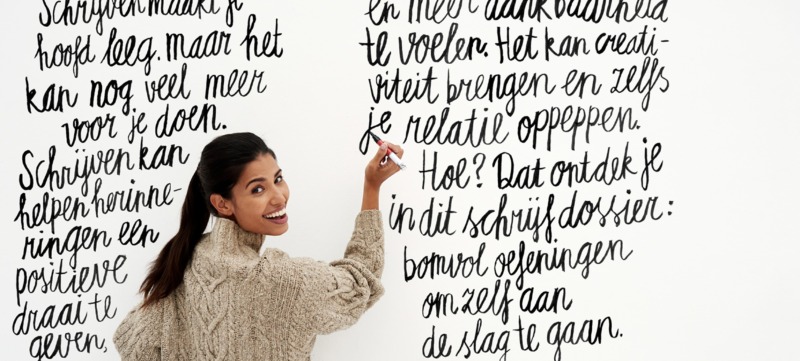 Schrijven maakt je
hoofd leeg. maar het
kan nog veel meer
voor je doen.
Schrijven kan
helpen herinne-
ringen een
positieve
draai te
geven,
en meer dankbaarheid
te voelen. Het kan creati-
viteit brengen en zelfs
je relatie oppeppen.
Hoe? Dat ontdek je
in dit schrijfdossier:
bomvol oefeningen
om zelf aan
de slag te gaan.